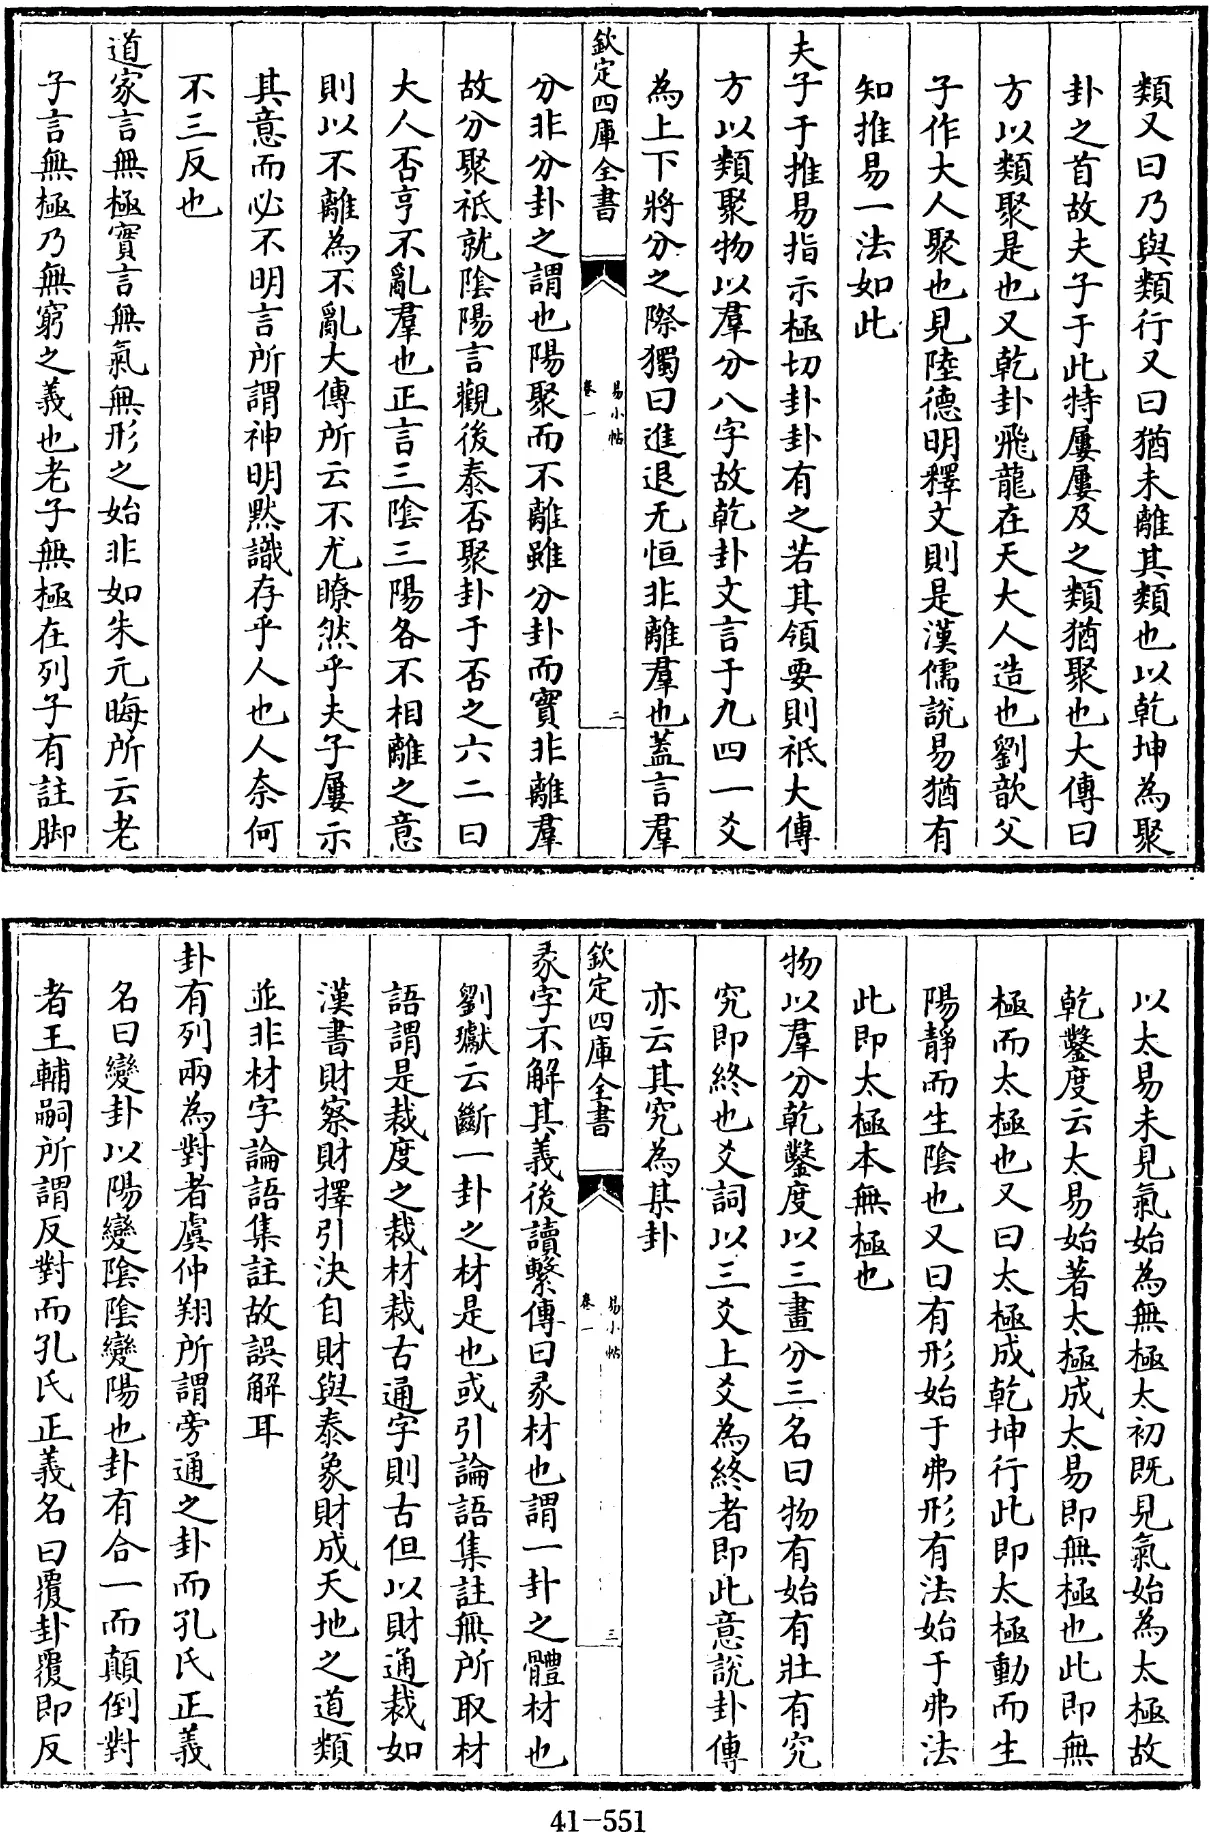 類又曰乃與類行又曰猶未離其類也以乾坤為聚
卦之首故夫子于此特屢屢及之類猶聚也大傳曰
方以類聚是也又乾卦飛龍在天大人造也劉歆父
子作大人聚也見陸德明釋文則是漢儒說易猶有
知推易一法如此
夫子于推易指示極切卦卦有之若其領要則祇大傳
方以類聚物以羣分八字故乾卦文言于九四一爻
為上下將分之際獨曰進退无恒非離羣也蓋言羣
欽定四庫全書
易小帖
卷一
二
分非分卦之謂也陽聚而不離雖分卦而實非離羣
故分聚祇就陰陽言觀後泰否聚卦于否之六二曰
大人否亨不亂羣也正言三陰三陽各不相離之意
則以不離為不亂大傳所云不尤瞭然乎夫子屢示
其意而必不明言所謂神明黙識存乎人也人奈何
不三反也
道家言無極實言無氣無形之始非如朱元晦所云老
子言無極乃無窮之義也老子無極在列子有註脚
以太易未見氣始為無極太初既見氣始為太極故
乾鑿度云太易始著太極成太易即無極也此即無
極而太極也又曰太極成乾坤行此即太極動而生
陽靜而生陰也又曰有形始于弗形有法始于弗法
此即太極本無極也
物以羣分乾鑿度以三畫分三名曰物有始有壯有究
究即終也爻詞以三爻上爻為終者即此意說卦傳
亦云其究為某卦
欽定四庫全書
易小帖
卷一
三
彖字不解其義後讀繫傳曰彖材也謂一卦之體材也
劉瓛云斷一卦之材是也或引論語集註無所取材
語謂是裁度之裁材裁古通字則古但以財通裁如
漢書財察財擇引決自財與泰象財成天地之道類
並非材字論語集註故誤解耳
卦有列兩為對者虞仲翔所謂旁通之卦而孔氏正義
名曰變卦以陽變陰陰變陽也卦有合一而顛倒對
者王輔嗣所謂反對而孔氏正義名曰覆卦覆即反
41-551